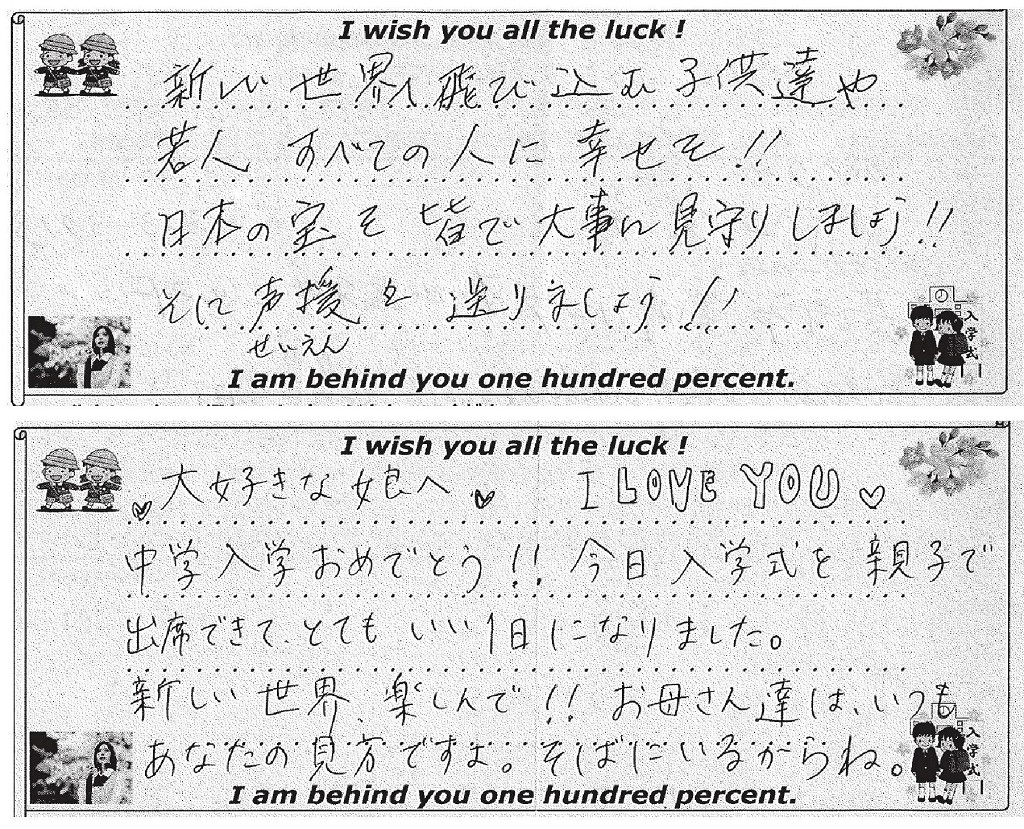 I wish you all the luck !
新しい世界へ飛び込む子供達や
若人 すべての人に 幸せを!!
日本の宝を 皆で大事に見守りしましょう!!
そして声援を 送りましょう!!
せいえん
入学式
I am behind you one hundred percent.
I wish you all the luck !
♡大好きな娘へ♡ I LOVE YOU♡
中学入学おめでとう!! 今日入学式を親子で
出席できて、とても いい1日になりました。
新しい世界、楽しんで!! お母さん達は、いつも
あなたの見方ですよ。そばにいるからね。
入学式
I am behind you one hundred percent.